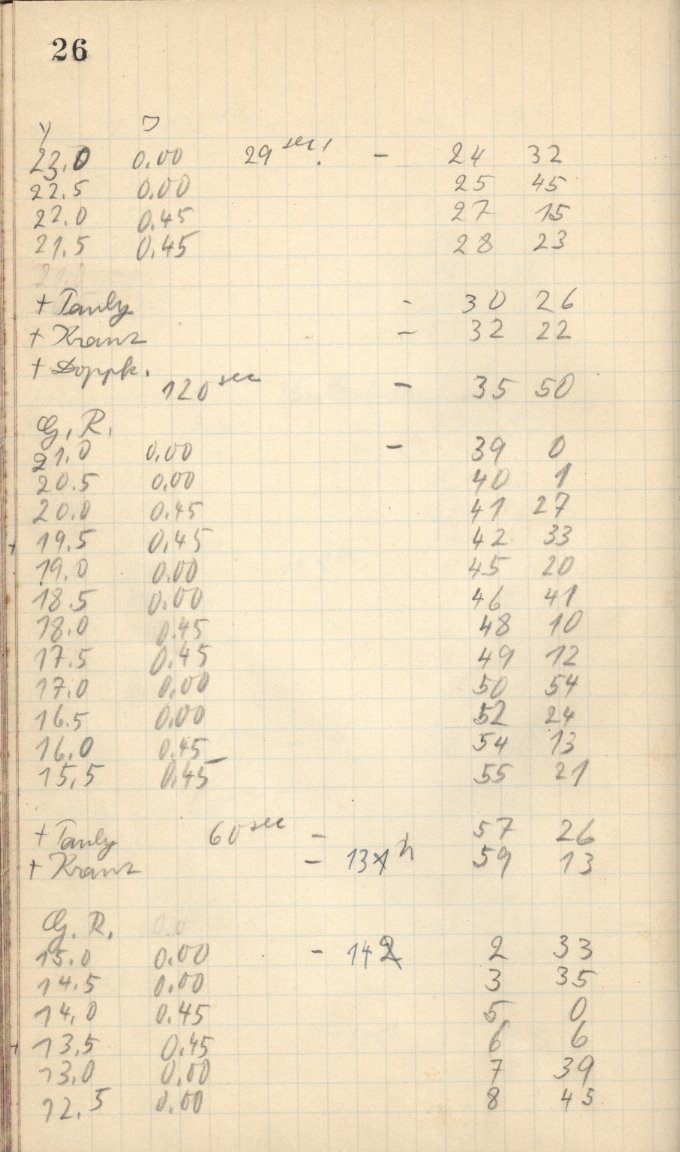 26
y J
23.0 0.00 29 sec! - 24 32
22.5 0.00 25 45
22.0 0.45 27 15
21.5 0.45 28 23
+ Tauly - 30 26
+ Kranz - 32 22
+ Doppk.
120 sec - 35 50
G. R.
21.0 0.00 - 39 0
20.5 0.00 40 1
20.0 0.45 41 27
+ 19.5 0.45 42 33
19.0 0.00 45 20
18.5 0.00 46 41
18.0 0.45 48 10
17.5 0.45 49 12
17.0 0.00 50 54
16.5 0.00 52 24
16.0 0.45 54 13
15.5 0.45 55 21
+ Tauly 60 sec - 57 26
+ Kranz - 13 1 h 59 13
G. R. 0.0
15.0 0.00 - 14 2 2 33
14.5 0.00 3 35
14.0 0.45 5 0
+ 13.5 0.45 6 6
13.0 0.00 7 39
12.5 0.00 8 45